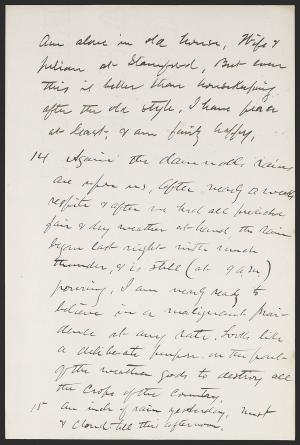 Am alone in old house, Wife &
Julian at Stamford, But even
this is better than housekeeping
after the old style. I have peace
at least, & am fairly happy,
14 Again the damnable rains
are upon us, After nearly a weeks
respite & after we had all predicted
fair & dry weather at hand, the rain
began last night with much
thunder, & is still (at 9 a.m.)
pouring. I am nearly ready to
believe in a malignant Prov-
idence at any rate. Looks like
a deliberate purpose on the part
of the weather gods to destroy all
the crops of the Country.
15 An inch of rain yesterday, mist
& cloud till this afternoon.